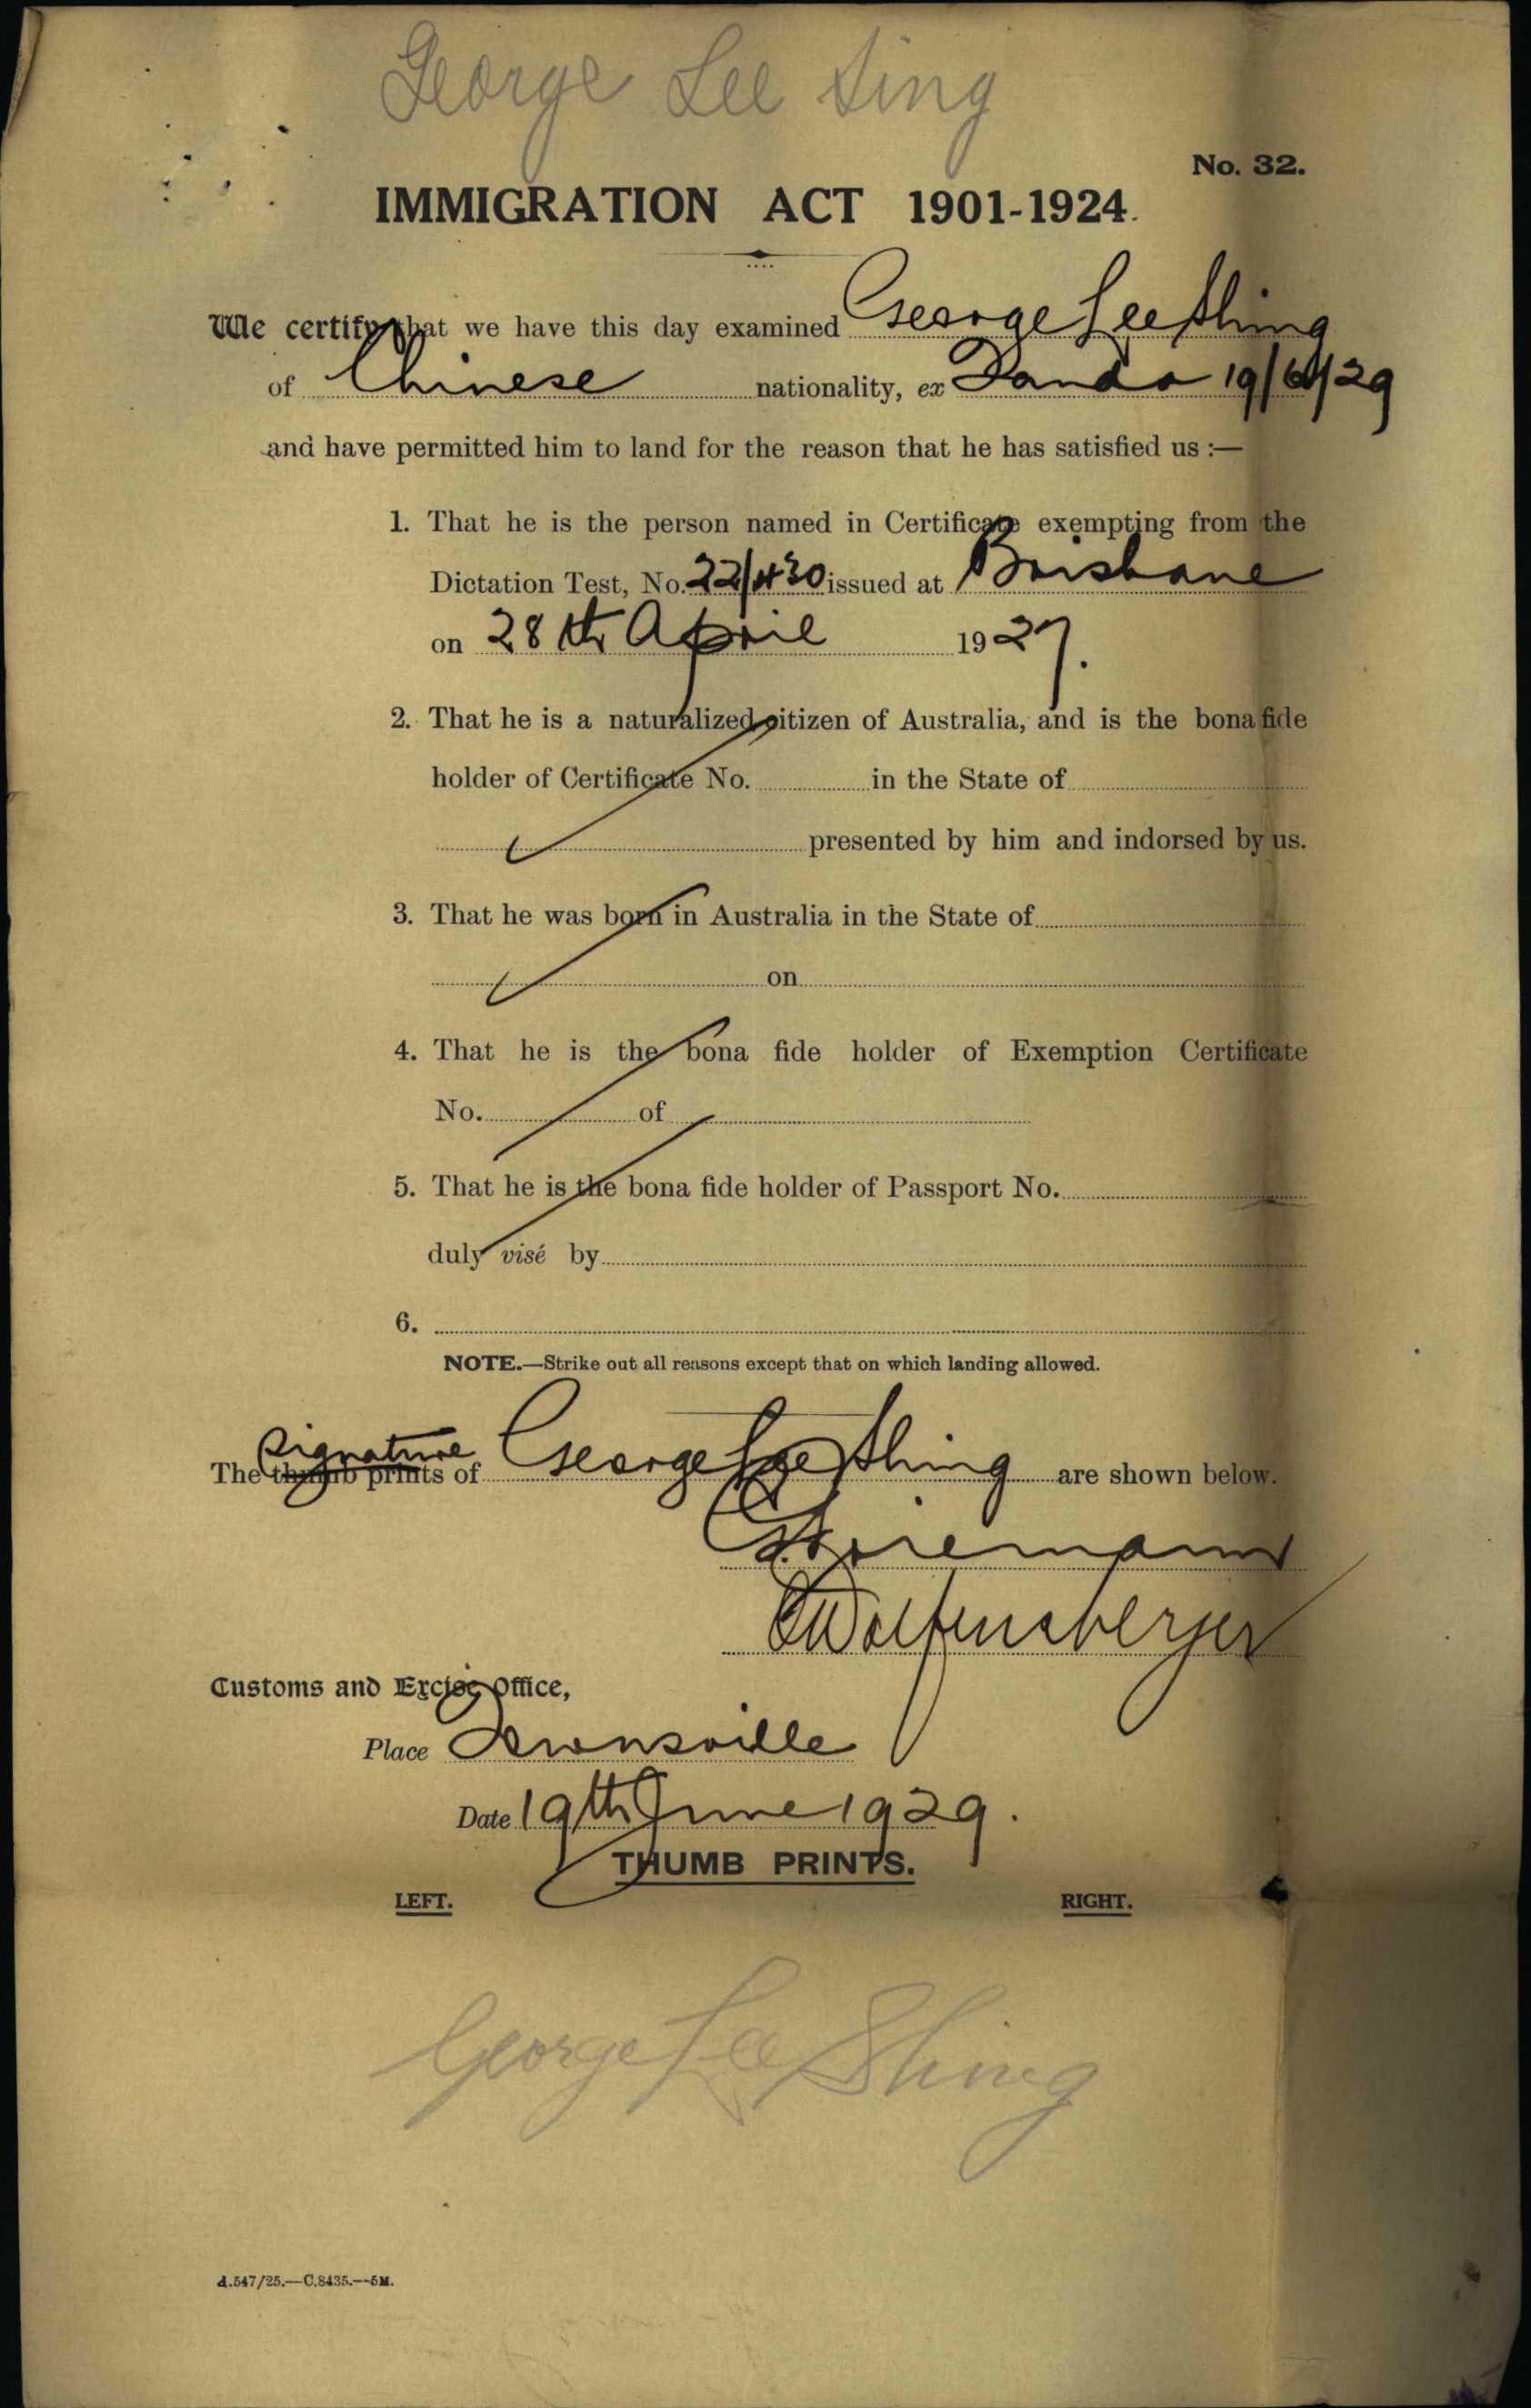 George Lee Sing
No. 32.
IMMIGRATION ACT 1901-1924.
We certify that we have this day examined George Lee Shing
of Chinese nationality, ex Tanda 19/6/29
and have permitted him to land for the reason that he has satisfied us :—
1. That he is the person named in Certificate exempting from the
Dictation Test, No. issued at Brisbane
on 28th April 1927.
2. That he is a naturalized citizen of Australia, and is the bona fide
holder of Certificate No. in the State of
presented by him and indorsed by us.
3. That he was born in Australia in the State of
on
4. That he is the bona fide holder of Exemption Certificate
No. of
5. That he is the bona fide holder of Passport No.
duly visé by
6.
NOTE.—Strike out all reasons except that on which landing allowed.
signature
The thumb prints of George Lee Shing are shown below.
Wolfensberger
Customs and Excise Office,
Place Townsville
Date 19th June 1929.
THUMB PRINTS.
LEFT. RIGHT.
George Lee Shing
A.547/25.—C.8435.—5M.